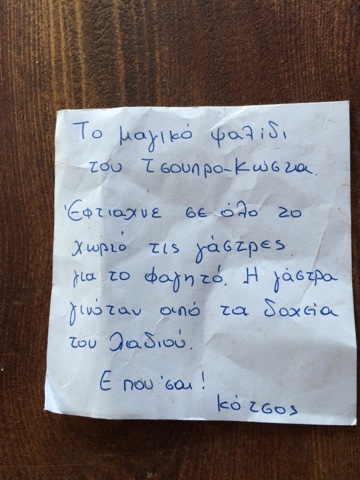 Το μαγικό ψαλίδι
του Τσουπρα-Κώστα.
Έφτιαχνε σε όλο το
χωριό τις γάστρες
για το φαγητό. Η γάστρα
γινόταν από τα δοχεία
του λαδιού.
Ε που'σαι!
Κότσος